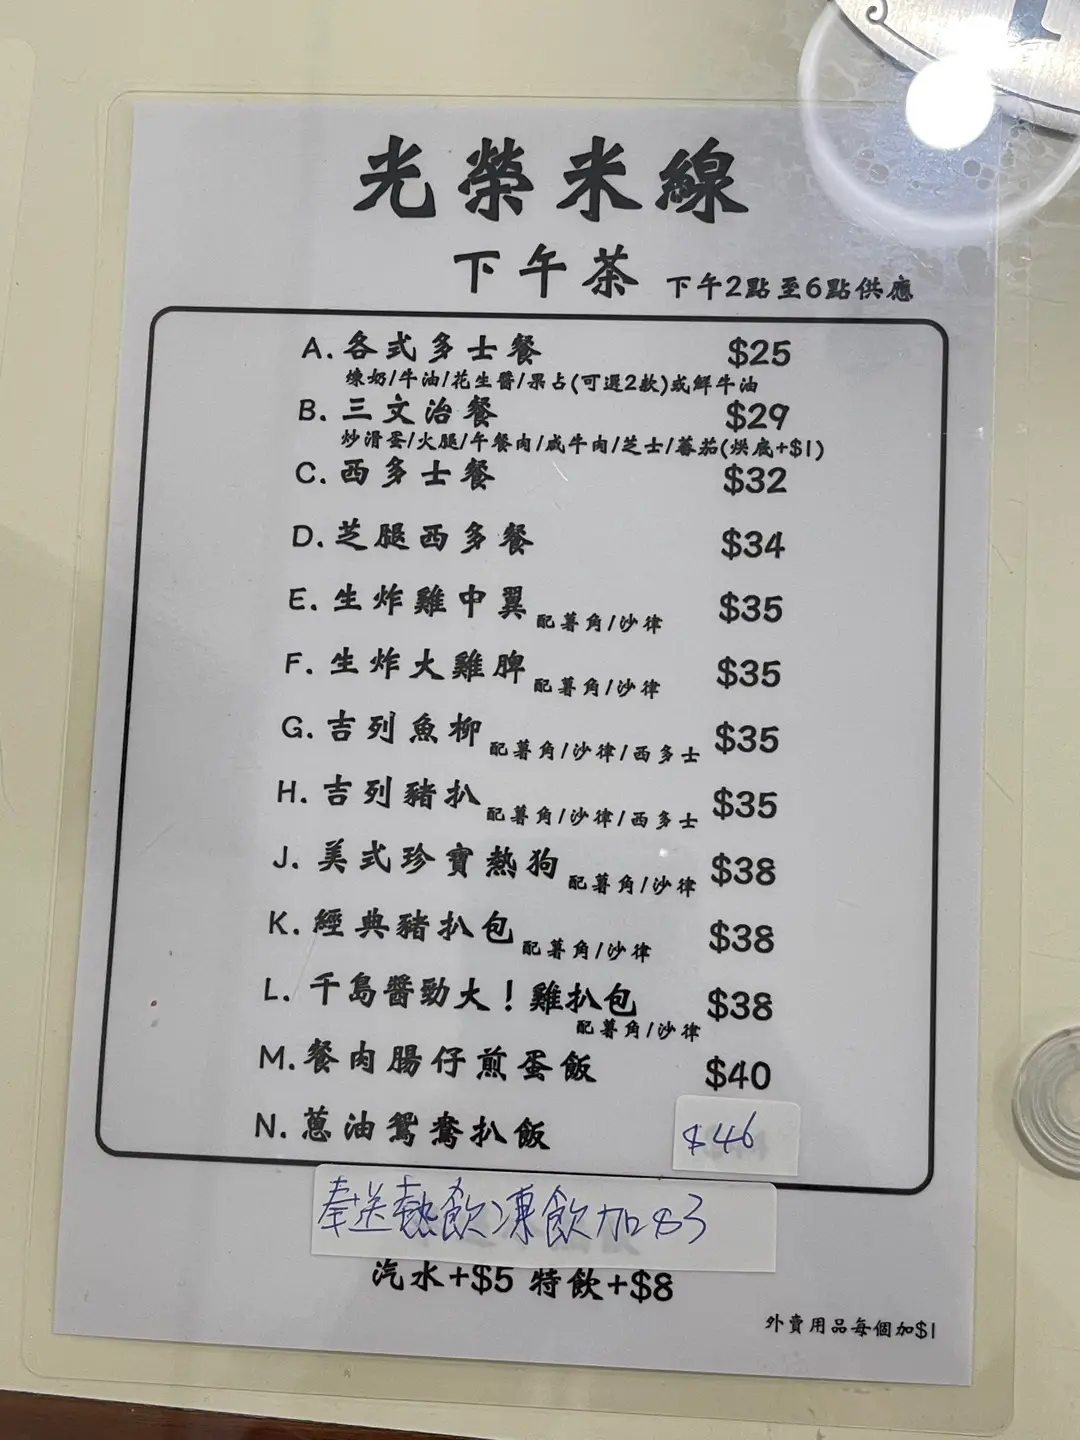 光榮米線
下午茶 下午2點至6點供應
A. 各式多士餐 $25
煉奶/牛油/花生醬/果占(可選2款)或鮮牛油
B. 三文治餐 $29
炒滑蛋/火腿/午餐肉/咸牛肉/芝士/蕃茄(烘底+$1)
C. 西多士餐 $32
D. 芝腿西多餐 $34
E. 生炸雞中翼 配薯角/沙律 $35
F. 生炸大雞脾 配薯角/沙律 $35
G. 吉列魚柳 配薯角/沙律/西多士 $35
H. 吉列豬扒 配薯角/沙律/西多士 $35
J. 美式珍寶熱狗 配薯角/沙律 $38
K. 經典豬扒包 配薯角/沙律 $38
L. 千島醬勁大！雞扒包 $38
配薯角/沙律
M. 餐肉腸仔煎蛋飯 $40
N. 蔥油鴛鴦扒飯 $46
奉送熱飲凍飲加$3
汽水+$5 特飲+$8
外賣用品每個加$1